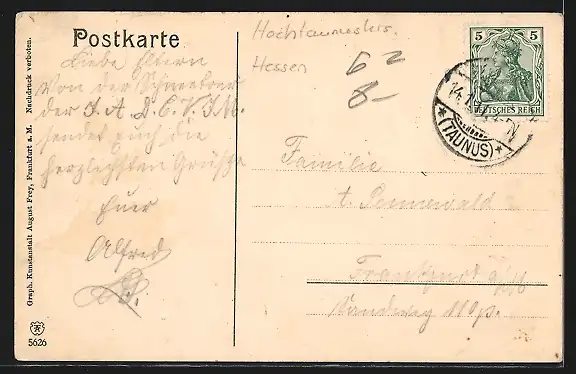 Postkarte
Liebe Eltern
Von der Schneetour
der J. A. D. C. V. J. M.
sendet euch die
herzlichsten Grüße
Euer
Alfred
Hochtaunuskrs.
Hessen
62
8-
5 5
DEUTSCHES REICH
14.1
*(TAUNUS)*
Familie
A.
Frankfurt a/M
Sandweg
Graph. Kunstanstalt August Frey, Frankfurt a. M. Nachdruck verboten.
5626